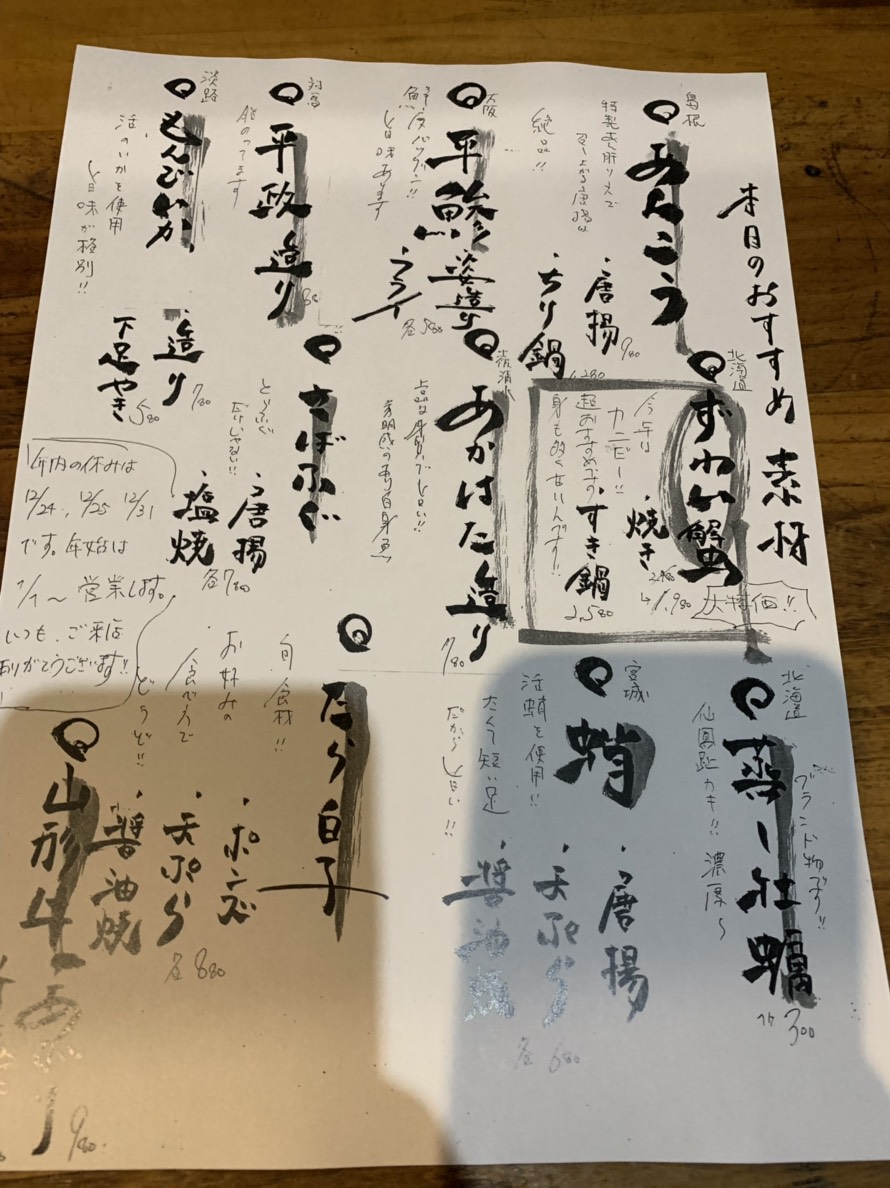 本日のおすすめ素材
島根
あんこう
特製あん肝リメで
絶品!!
・唐揚
980
・ちり鍋
1,280
北海道
ずわい蟹
・焼き
2,480
→1,980
大特価!!
・すき鍋
2,580
今年は
カニデー!!
超おすすめです
身も多くなんです!!
北海道
蒸し牡蠣
ブランド物です!!
仙鳳趾カキ!! 濃厚〜
1ケ 300
大阪
平鯵
・姿造り
・フライ
各580
旨味あります
あかはた造り
上品な身質で旨い!!
透明感のある白身魚
780
宮城
蛸
活蛸を使用!!
太くて短い足
だから旨い!!
・唐揚
・天ぷら
・醤油焼
各 680
対馬
平政造り
脂のってます
さばふぐ
とらふぐ
だけじゃない!!
・唐揚
・塩焼
各780
たら白子
旬食材!!
お好みの
食べ方で
どうぞ!!
・ポンズ
・天ぷら
・醤油焼
各 880
淡路
もんごいか
活のいかを使用
旨味が格別!!
・造り
780
・下足やき
580
年内の休みは
12/24, 12/25 12/31
です。年始は
1/1〜営業します。
いつも、ご来店
ありがとうございます!!
山形牛
あぶり
980